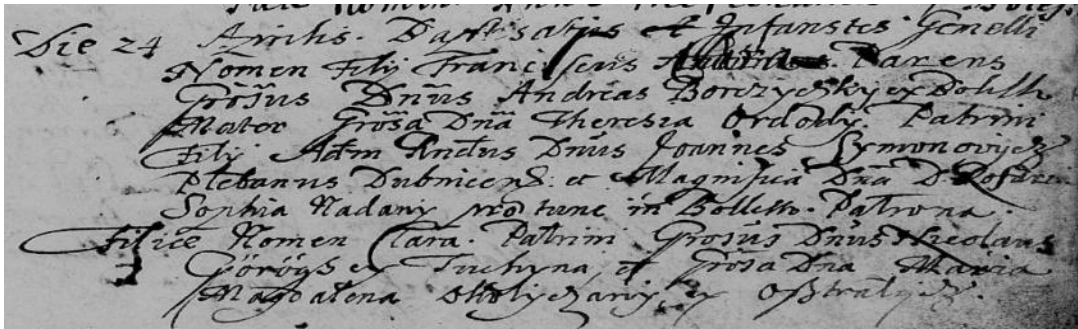 Die 24 Aprilis. Baptisatus et Infantes Gemelli
Nomen Filij Franciscus Parens
Grosus Dnus Andreas Borczyczky ex Bolesso
Mater Grosa Dna Theresia Ordody. Patrini
Filij Adm Rndus Dnus Joannes Symonovijcz
Plebanus Dubnicens. et Magnifica Dna D.
Sophia Nadany pro tunc in Bollesso. Patrona.
Filiae Nomen Clara. Patrini Grosus Dnus Nicolaus
Görögh ex Tuchyna, et Grosa Dna Maria
Magdalena ex